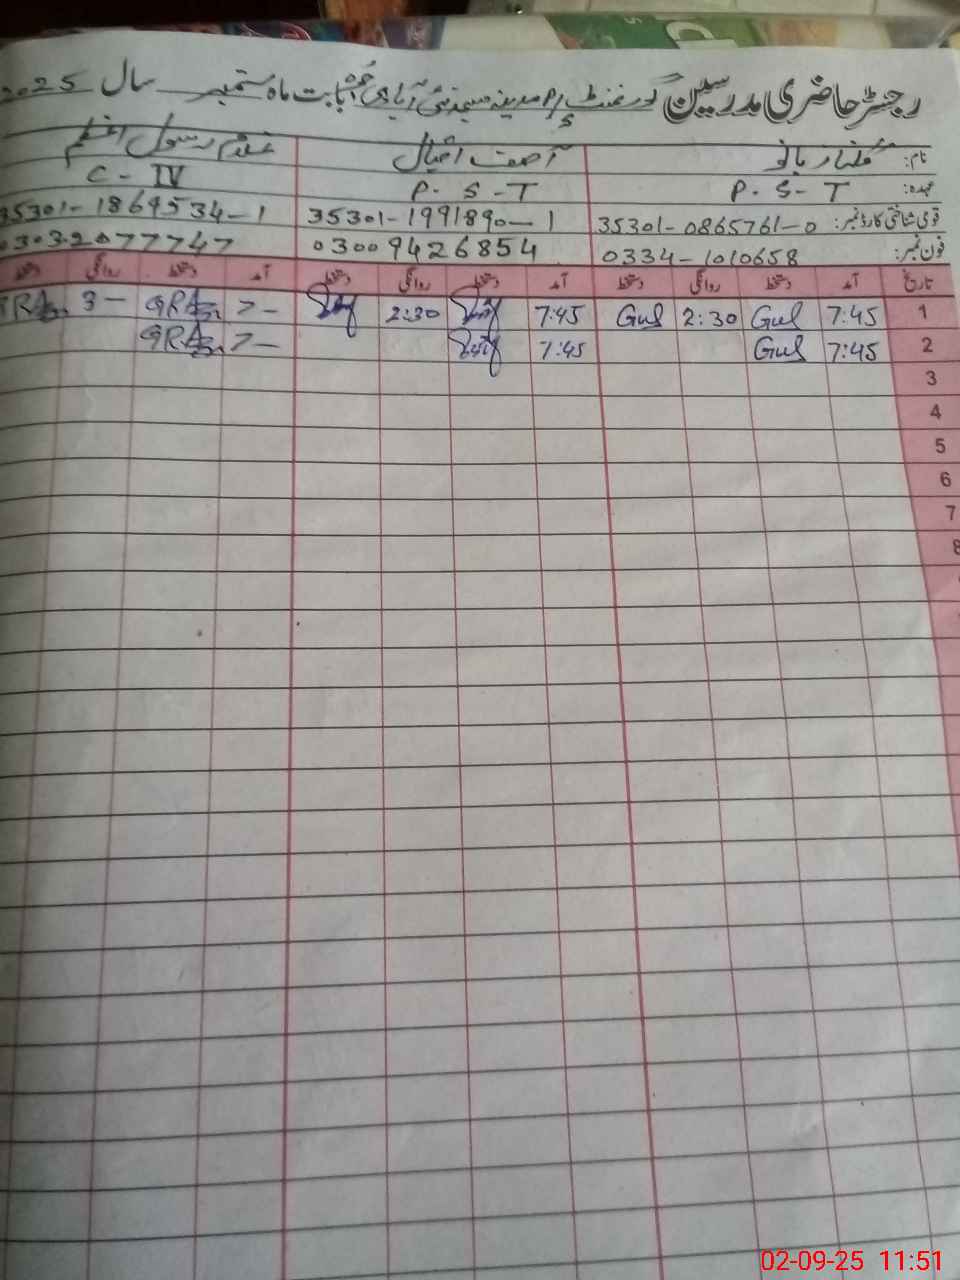 رجسٹر حاضری مدرسین گورنمنٹ پرائمری مدینہ مسجد نئی آبادی بابت ماہ ستمبر سال 2025
نام: گلنار بانو آصف اقبال غلام رسول اعظم
عہدہ: P.S-T P.S-T C-IV
قومی شناختی کارڈ نمبر: 35301-0865761-0 35301-1991890-1 35301-1869534-1
فون نمبر: 0334-1010658 03009426854 03032077747
تاریخ آمد دستخط روانگی دستخط آمد دستخط روانگی دستخط آمد دستخط روانگی دستخط
1 7:45 Gul 2:30 Gul 7:45 2:30 7- GRA 3- GRA
2 7:45 Gul 7:45 7- GRA
3
4
5
6
7
8
02-09-25 11:51